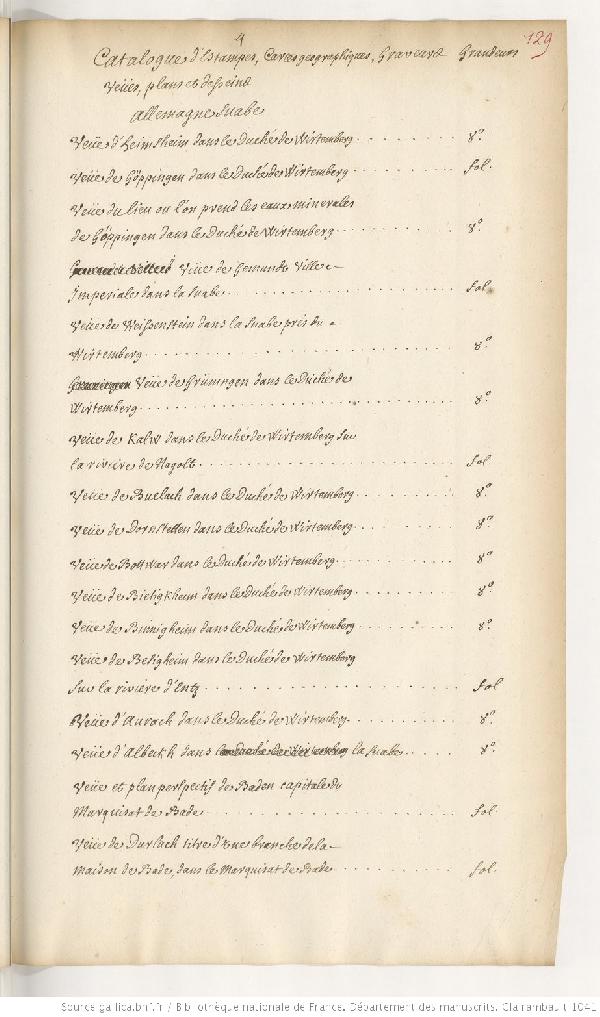 4
129
Catalogue d'Estampes, Cartes geographiques, Graveure Grandeurs
Veües, plans et desseins
Allemagne Suabe
Veüe d'Heimsheim dans le Duché de Wirtemberg . . . . . . 8º
Veüe de Göppingen dans le Duché de Wirtemberg . . . . . . fol.
Veüe du lieu ou l'on prend les eaux minerales
de Göppingen dans le Duché de Wirtemberg . . . . . . 8º
Veüe de Gemunds Ville
Imperiale dans la Suabe . . . . . . fol.
Veüe de Weissenstein dans la Suabe près du
Wirtemberg . . . . . . 8º
Veüe de Gruningen dans le Duché de
Wirtemberg . . . . . . 8º
Veüe de Kalw dans le Duché de Wirtemberg sur
la riviere de Nagolt . . . . . . fol
Veüe de Buelach dans le Duché de Wirtemberg . . . . . . 8º
Veüe de Dornstetten dans le Duché de Wirtemberg . . . . . . 8º
Veüe de Bottwar dans le Duché de Wirtemberg . . . . . . 8º
Veüe de Bietigkheim dans le Duché de Wirtemberg . . . . . . 8º
Veüe de Binnigheim dans le Duché de Wirtemberg . . . . . . 8º
Veüe de Besigheim dans le Duché de Wirtemberg
sur la riviere d'Entz . . . . . . fol
Veüe d'Aurach dans le Duché de Wirtemberg . . . . . . 8º
Veüe d'Albeckh dans le Duché de Wirtemberg la Suabe . . . . . . 8º
Veüe et plan perspectif de Baden capitale du
Marquisat de Bade . . . . . . fol.
Veüe de Durlach titre d'une branche de la
maison de Bade, dans le Marquisat de Bade . . . . . . fol.
Source gallica.bnf.fr / Bibliothèque nationale de France. Département des manuscrits. Clairambault 1041